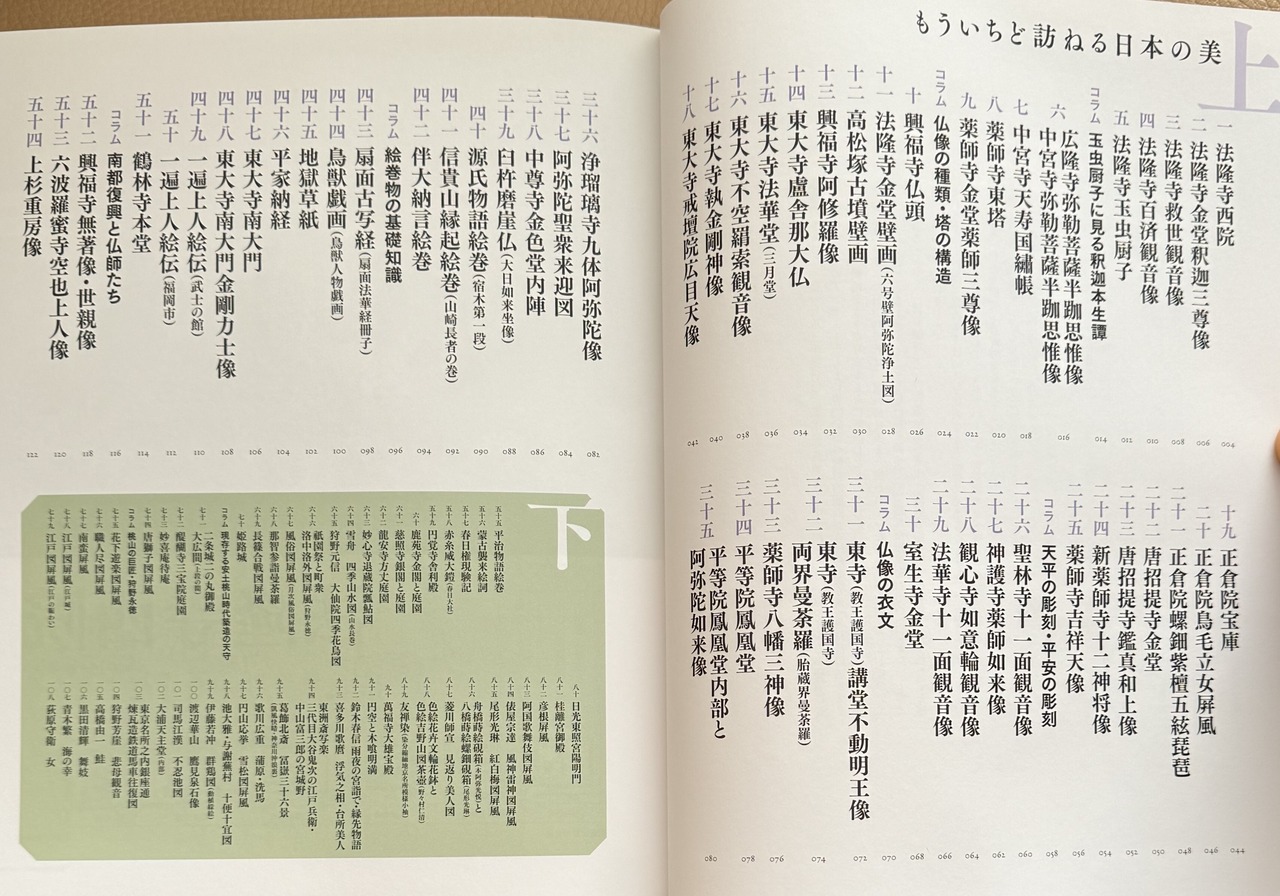 もういちど訪ねる日本の美
上
一 法隆寺西院 004
二 法隆寺金堂釈迦三尊像 006
三 法隆寺救世観音像 008
四 法隆寺百済観音像 010
五 法隆寺玉虫厨子 012
コラム 玉虫厨子に見る釈迦本生譚 014
六 広隆寺弥勒菩薩半跏思惟像
中宮寺弥勒菩薩半跏思惟像 016
七 中宮寺天寿国繡帳 018
八 薬師寺東塔 020
九 薬師寺金堂薬師三尊像 022
コラム 仏像の種類・塔の構造 024
十 興福寺仏頭 026
十一 法隆寺金堂壁画（六号壁阿弥陀浄土図） 028
十二 高松塚古墳壁画 030
十三 興福寺阿修羅像 032
十四 東大寺盧舎那大仏 034
十五 東大寺法華堂（三月堂） 036
十六 東大寺不空羂索観音像 038
十七 東大寺執金剛神像 040
十八 東大寺戒壇院広目天像 042
十九 正倉院宝庫 044
二十 正倉院鳥毛立女屏風 046
二十一 正倉院螺鈿紫檀五絃琵琶 048
二十二 唐招提寺金堂 050
二十三 唐招提寺鑑真和上像 052
二十四 新薬師寺十二神将像 054
二十五 薬師寺吉祥天像 056
コラム 天平の彫刻・平安の彫刻 058
二十六 聖林寺十一面観音像 060
二十七 神護寺薬師如来像 062
二十八 観心寺如意輪観音像 064
二十九 法華寺十一面観音像 066
三十 室生寺金堂 068
コラム 仏像の衣文 070
三十一 東寺（教王護国寺）講堂不動明王像 072
三十二 東寺（教王護国寺）
両界曼荼羅（胎蔵界曼荼羅） 074
三十三 薬師寺八幡三神像 076
三十四 平等院鳳凰堂 078
三十五 平等院鳳凰堂内部と
阿弥陀如来像 080
三十六 浄瑠璃寺九体阿弥陀像 082
三十七 阿弥陀聖衆来迎図 084
三十八 中尊寺金色堂内陣 086
三十九 臼杵磨崖仏（大日如来坐像） 088
四十 源氏物語絵巻（宿木第一段） 090
四十一 信貴山縁起絵巻（山崎長者の巻） 092
四十二 伴大納言絵巻 094
コラム 絵巻物の基礎知識 096
四十三 扇面古写経（扇面法華経冊子） 098
四十四 鳥獣戯画（鳥獣人物戯画） 100
四十五 地獄草紙 102
四十六 平家納経 104
四十七 東大寺南大門 106
四十八 東大寺南大門金剛力士像 108
四十九 一遍上人絵伝（武士の館） 110
五十 一遍上人絵伝（福岡市） 112
五十一 鶴林寺本堂 114
コラム 南都復興と仏師たち 116
五十二 興福寺無著像・世親像 118
五十三 六波羅蜜寺空也上人像 120
五十四 上杉重房像 122
下
五十五 平治物語絵巻
五十六 蒙古襲来絵詞
五十七 春日権現験記
五十八 赤糸威大鎧（春日大社）
五十九 円覚寺舎利殿
六十 鹿苑寺金閣と庭園
六十一 慈照寺銀閣と庭園
六十二 龍安寺方丈庭園
六十三 妙心寺退蔵院瓢鮎図
六十四 雪舟 四季山水図（山水長巻）
六十五 狩野元信 大仙院四季花鳥図
六十六 祇園祭と町衆
洛中洛外図屏風（狩野永徳）
六十七 風俗図屏風（月次風俗図屏風）
六十八 那智参詣曼荼羅
六十九 長篠合戦図屏風
七十 姫路城
コラム 現存する安土桃山時代築造の天守
七十一 二条城二の丸御殿
大広間（上段の間）
七十二 醍醐寺三宝院庭園
七十三 妙喜庵待庵
七十四 唐獅子図屏風
コラム 桃山の巨匠・狩野永徳
七十五 花下遊楽図屏風
七十六 職人尽図屏風
七十七 南蛮屏風
七十八 江戸図屏風（江戸城）
七十九 江戸図屏風（江戸の賑わい）
八十 日光東照宮陽明門
八十一 桂離宮御殿
八十二 彦根屏風
八十三 阿国歌舞伎図屏風
八十四 俵屋宗達 風神雷神図屏風
八十五 尾形光琳 紅白梅図屏風
八十六 舟橋蒔絵硯箱（本阿弥光悦）と
八橋蒔絵螺鈿硯箱（尾形光琳）
八十七 菱川師宣 見返り美人図
八十八 色絵花卉文輪花鉢と
色絵吉野山図茶壺（野々村仁清）
八十九 友禅染
九十 萬福寺大雄宝殿
九十一 円空と木喰明満
九十二 鈴木春信 雨夜の宮詣で・縁先物語
九十三 喜多川歌麿 浮気之相・台所美人
九十四 東洲斎写楽
三代目大谷鬼次の江戸兵衛・
中山富三郎の宮城野
九十五 葛飾北斎 冨嶽三十六景
（凱風快晴・神奈川沖浪裏）
九十六 歌川広重 蒲原・洗馬
九十七 円山応挙 雪松図屏風
九十八 池大雅・与謝蕪村 十便十宜図
九十九 伊藤若冲 群鶏図（動植綵絵）
一〇〇 渡辺華山 鷹見泉石像
一〇一 司馬江漢 不忍池図
一〇二 大浦天主堂（内部）
一〇三 東京名所之内銀座通
煉瓦造鉄道馬車往復図
一〇四 狩野芳崖 悲母観音
一〇五 高橋由一 鮭
一〇六 黒田清輝 舞妓
一〇七 青木繁 海の幸
一〇八 荻原守衛 女